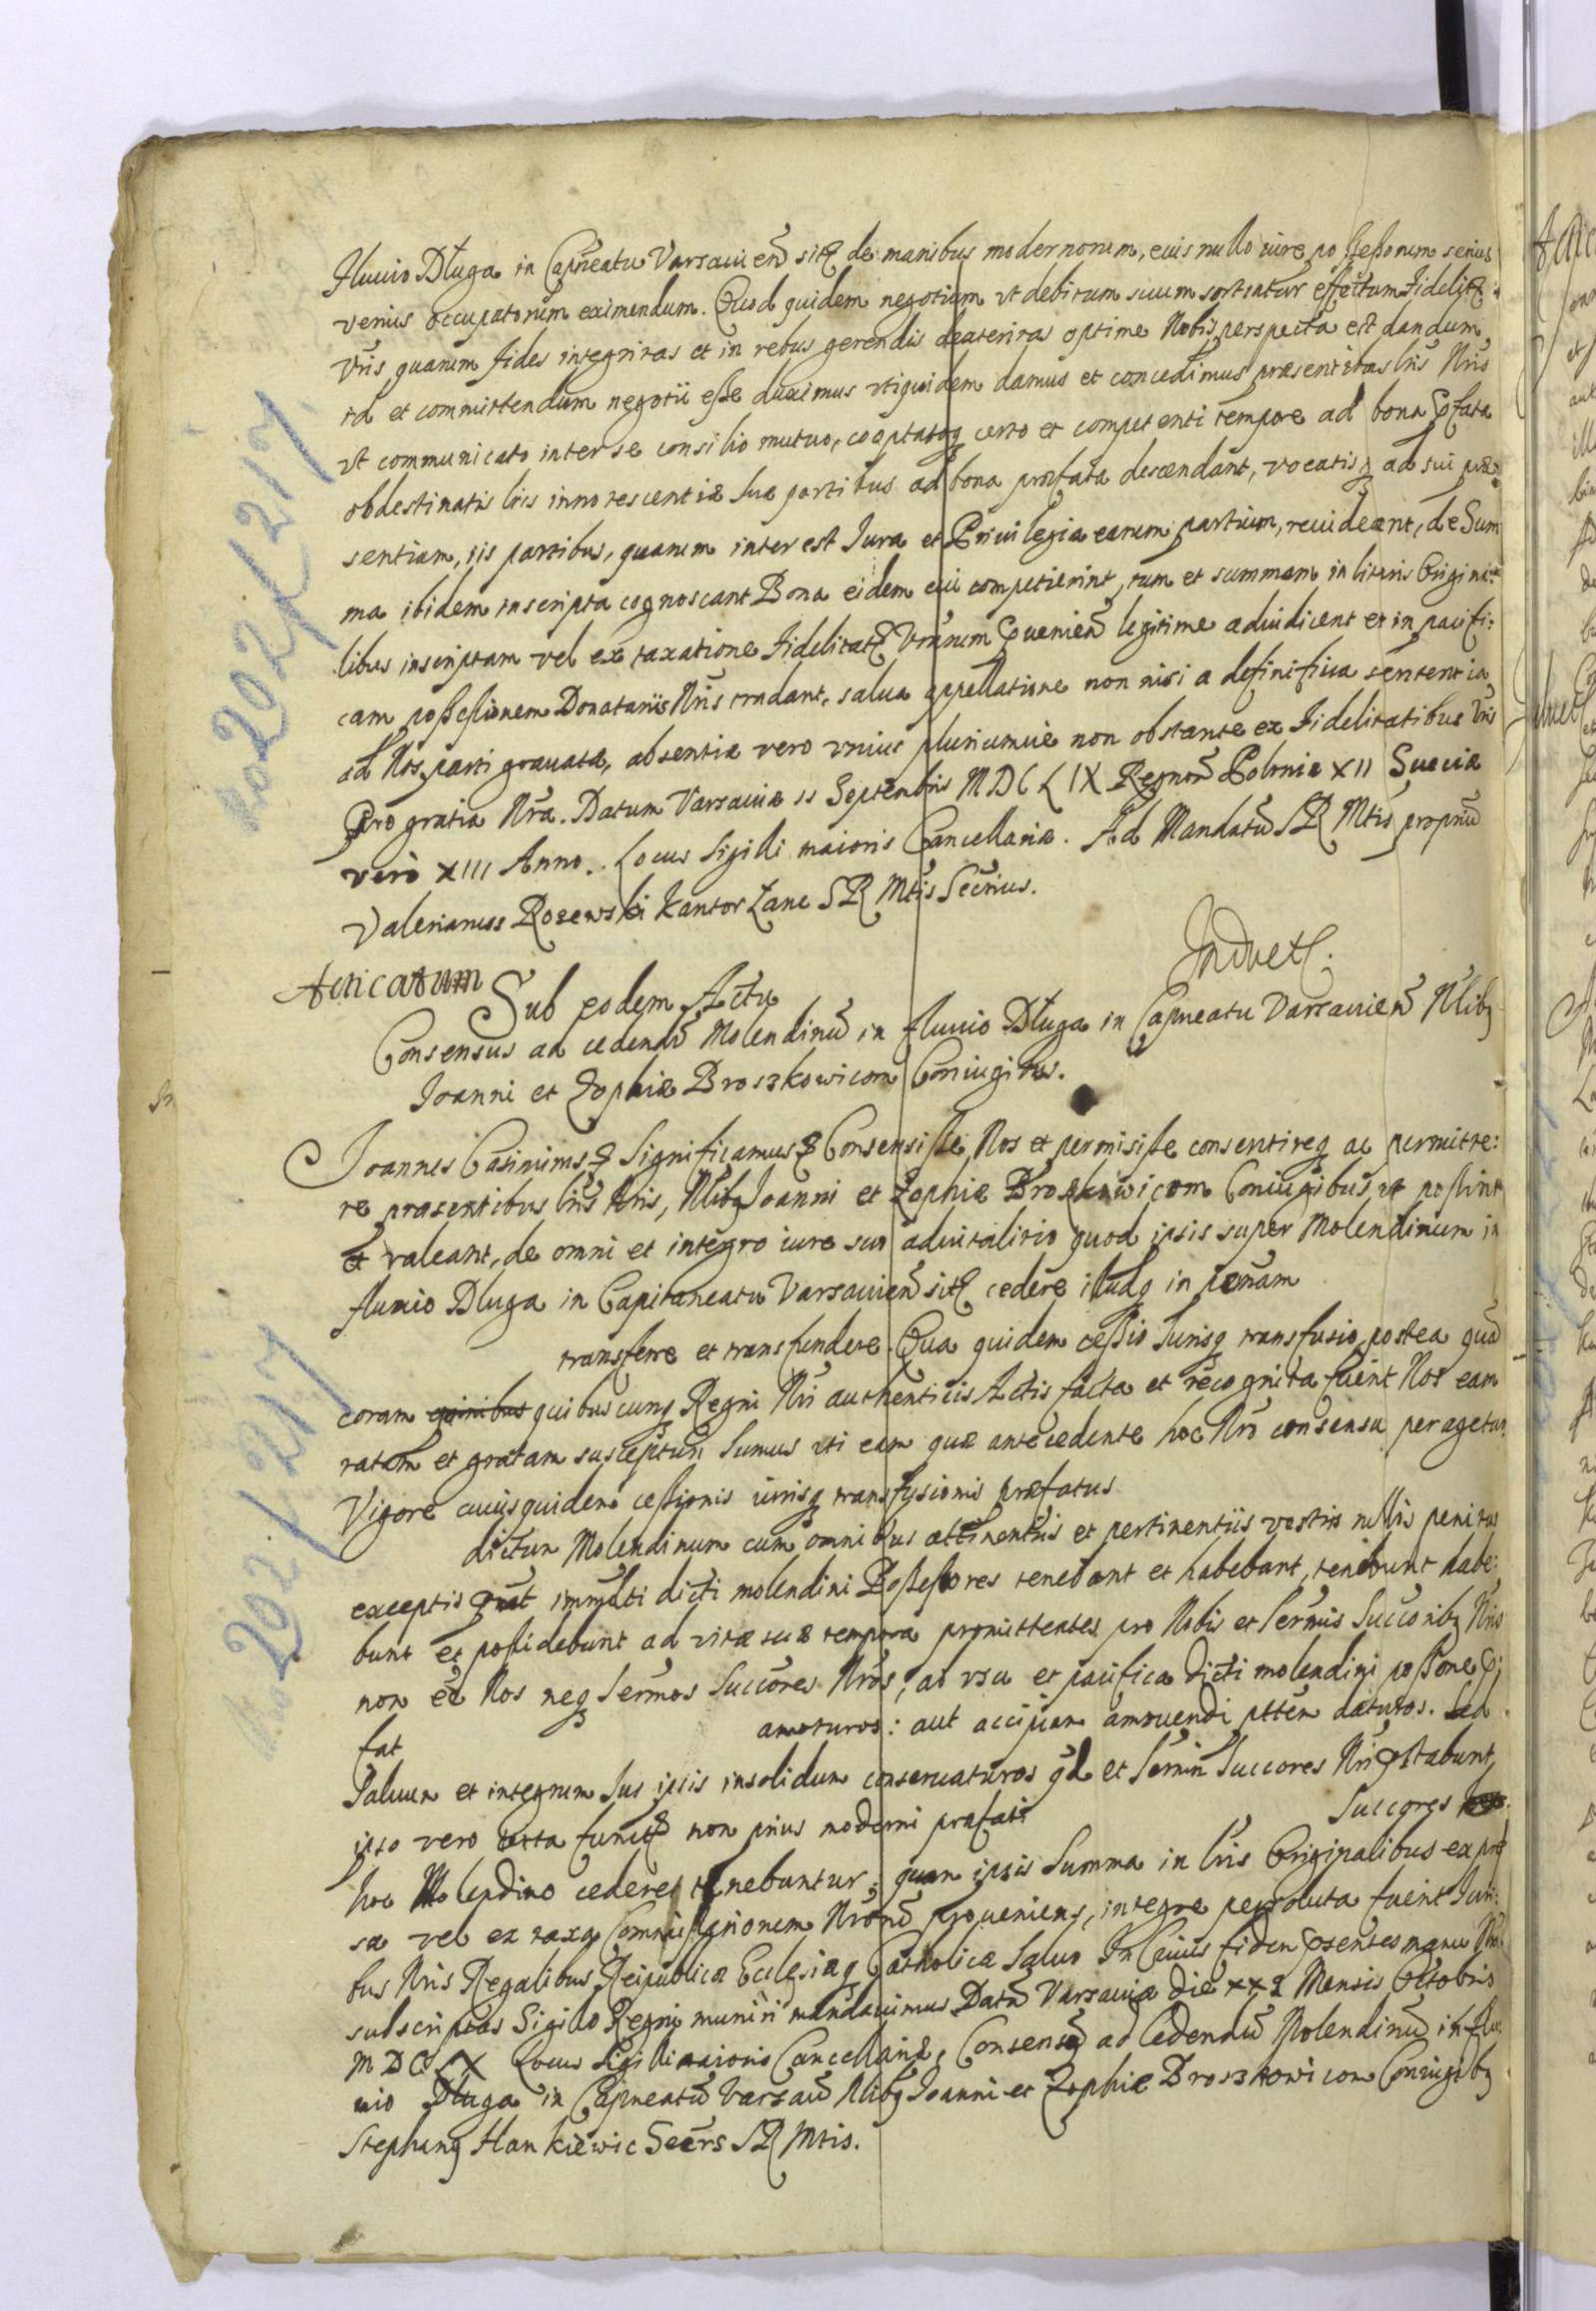 fluvio Długa in Capneatu Varsavien sit de manibus modernorum, eius nullo iure possessorum serius
verius occupatorum eximendum. Quod quidem negotium vt debitum suum sortiatur effectum fidelit
Vris quarum fides integritas et in rebus gerendis dexteritas optime Nobis perspecta est dandum
id et committendum negotii esse duximus vtiquidem damus et concedimus præsentibus lris Nris
vt communicato inter se consilio mutuo, cooptatoq certo et competenti tempore ad bona pfata
obdestinatis lris innotescentiæ suæ partibus ad bona præfata descendant, vocatisq ad sui præ:
sentiam, iis partibus, quarum interest Iura et Privilegia earum partium, revideant, de Sum
ma ibidem inscripta cognoscant Bona eidem cui competierint, tum et summam in literis Origina:
libus inscriptam vel ex taxatione Fidelitat Vrarum pvenien legitime adiudicent et in pacifi:
cam possessionem Donatariis Nris tradant, salva appellatione non nisi a definitiva sententia
ad Nos parti gravatæ, absentia vero vnius pluriumve non obstante ex Fidelitatibus Vris
Pro gratia Nra. Datum Varsaviæ 11 Septembris MDCLIX Regnor Poloniæ XII Sueciæ
vero XIII Anno. Locus Sigilli maioris Cancellariæ. Ad Mandatu SR Mtis propriu
Valerianus Rosewski Kantor Zane SR Mtis Secrius.
Acticatum
Induct.
Sub eodem Actu
Consensus ad cedendu Molendinu in fluvio Długa in Capneatu Varsavien Nlibq
Joanni et Zophiæ Broszkowicom Coniugibus.
Joannes Casimirus Significamus Consensisse Nos et permisisse consentireq ac permitte:
re præsentibus lris Nris, Nlibq Joanni et Zophiæ Broszkowicom Coniugibus, vt possint
et valeant, de omni et integro iure suo advitalitio quod ipsis super Molendinum in
fluvio Dluga in Capitaneatu Varsavien sit cedere illudq in personam
transferre et transfundere. Qua quidem cessio Iurisq transfusio, postea qua
coram omnibus quibuscunq Regni Nri authenticis Actis facta et recognita fuerit Nos eam
ratam et gratam suscepturi sumus uti eam quæ antecedente hoc Nro consensu peragetur
Vigore cuius quidem cessionis iurisq transfusionis præfatus
dictum Molendinum cum omnibus attinentiis et pertinentiis vestris nullis penitus
exceptis prout immediti dicti molendini Possessores tenebant et habebant, tenebunt habe:
bunt et possidebunt ad vitæ suæ tempora promittentes pro Nobis et Sermis Succoribq Nris
non ee Nos neq Sermos Succores Nros, ab vsu et pacifica dicti molendini possone p
fat amoturos: aut accipiam amovendi ptten daturos. Sed
Salvum et integrum Ius ipsis insolidum conservaturos qd et Sermi Succores Nri pstabunt,
ipso vero facta funct non prius moderni præfati Succores
hoc Molendino cedere tenebuntur, quam ipsis Summa in lris Originalibus expres
sa vel ex taxa Commissarionem Nroru proveniens, integre persoluta fuerit Iuri:
bus Nris Regalibus Reipublicæ Ecclesiæq Catholicæ Salvo In Cuius fidem psentes manu Nra
subscriptas Sigillo Regni muniri mandavimus Datu Varsaviæ Die XXI Mensis Octobris
MDCLX Locus Sigilli maioris Cancellariæ, Consensu ad Cedendu Molendinu in flu:
vio Długa in Capneatu Varsav Nlibq Joanni et Zophiæ Broszkowicom Coniugibq
Stephanq Hankiewic Secrs SR Mtis.
No 202 / 217
No 202 / 217